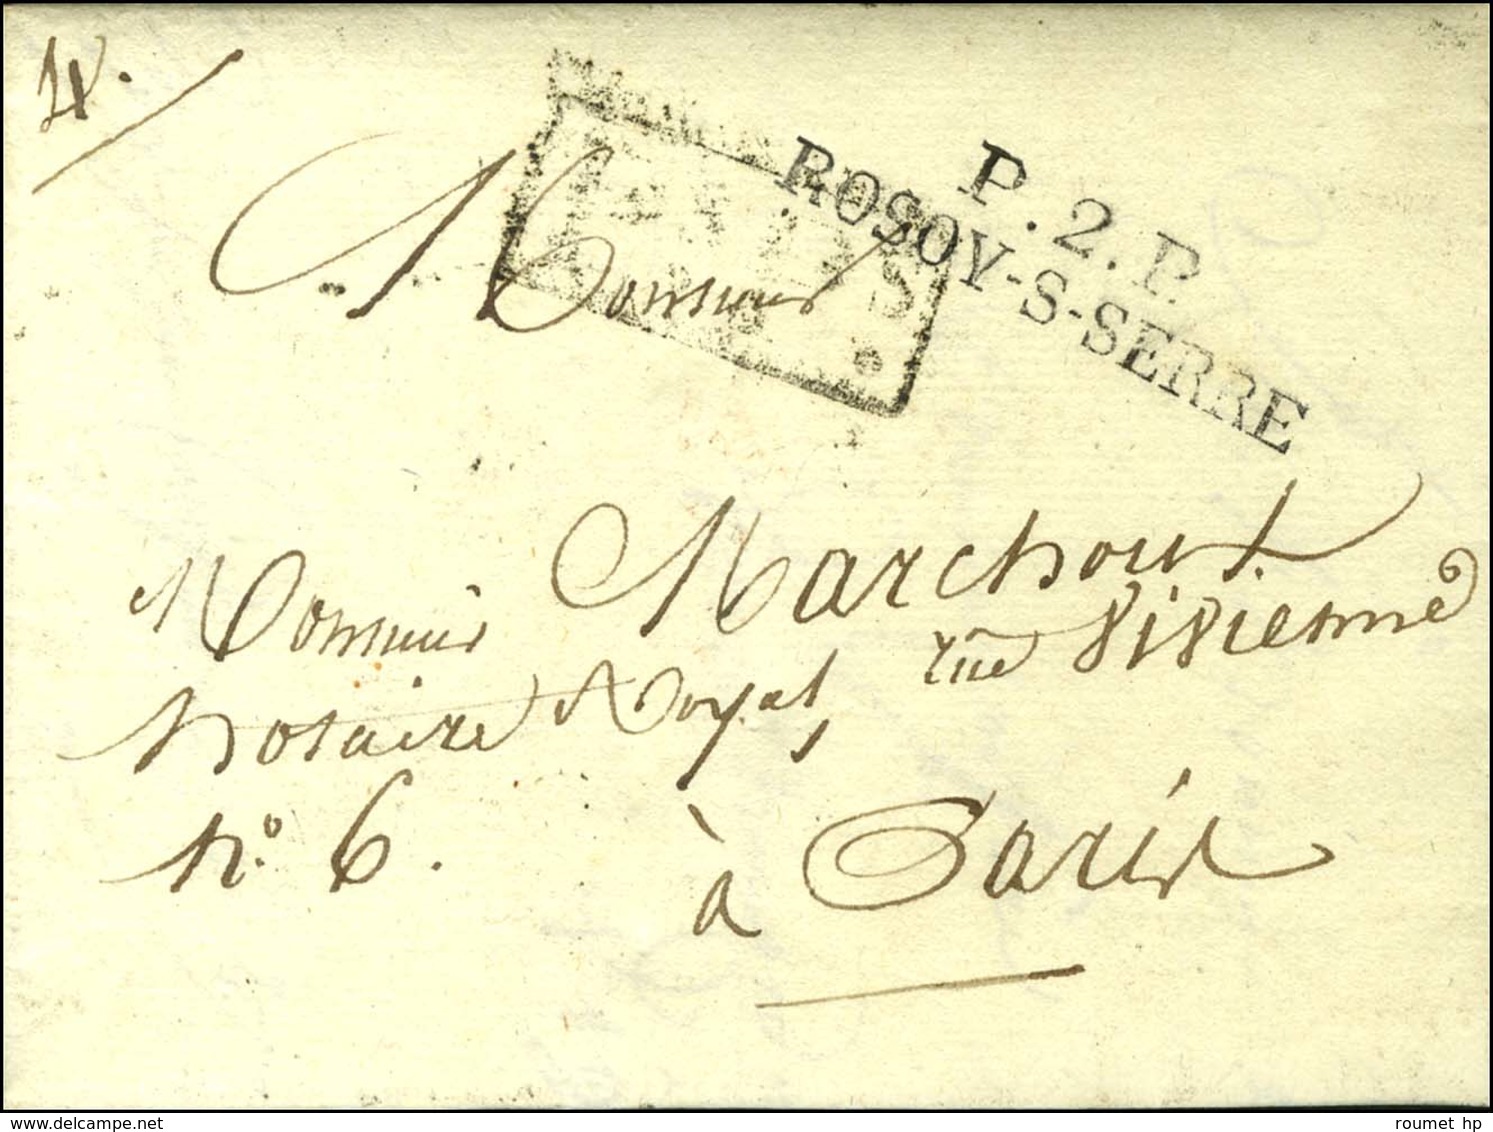 P.2.P.
ROSOY-S-SERRE
Monsieur
Monsieur Marchoux
Notaire Royal, rue Vivienne
N.° 6.
à Paris
delcampe.net
roumet hp